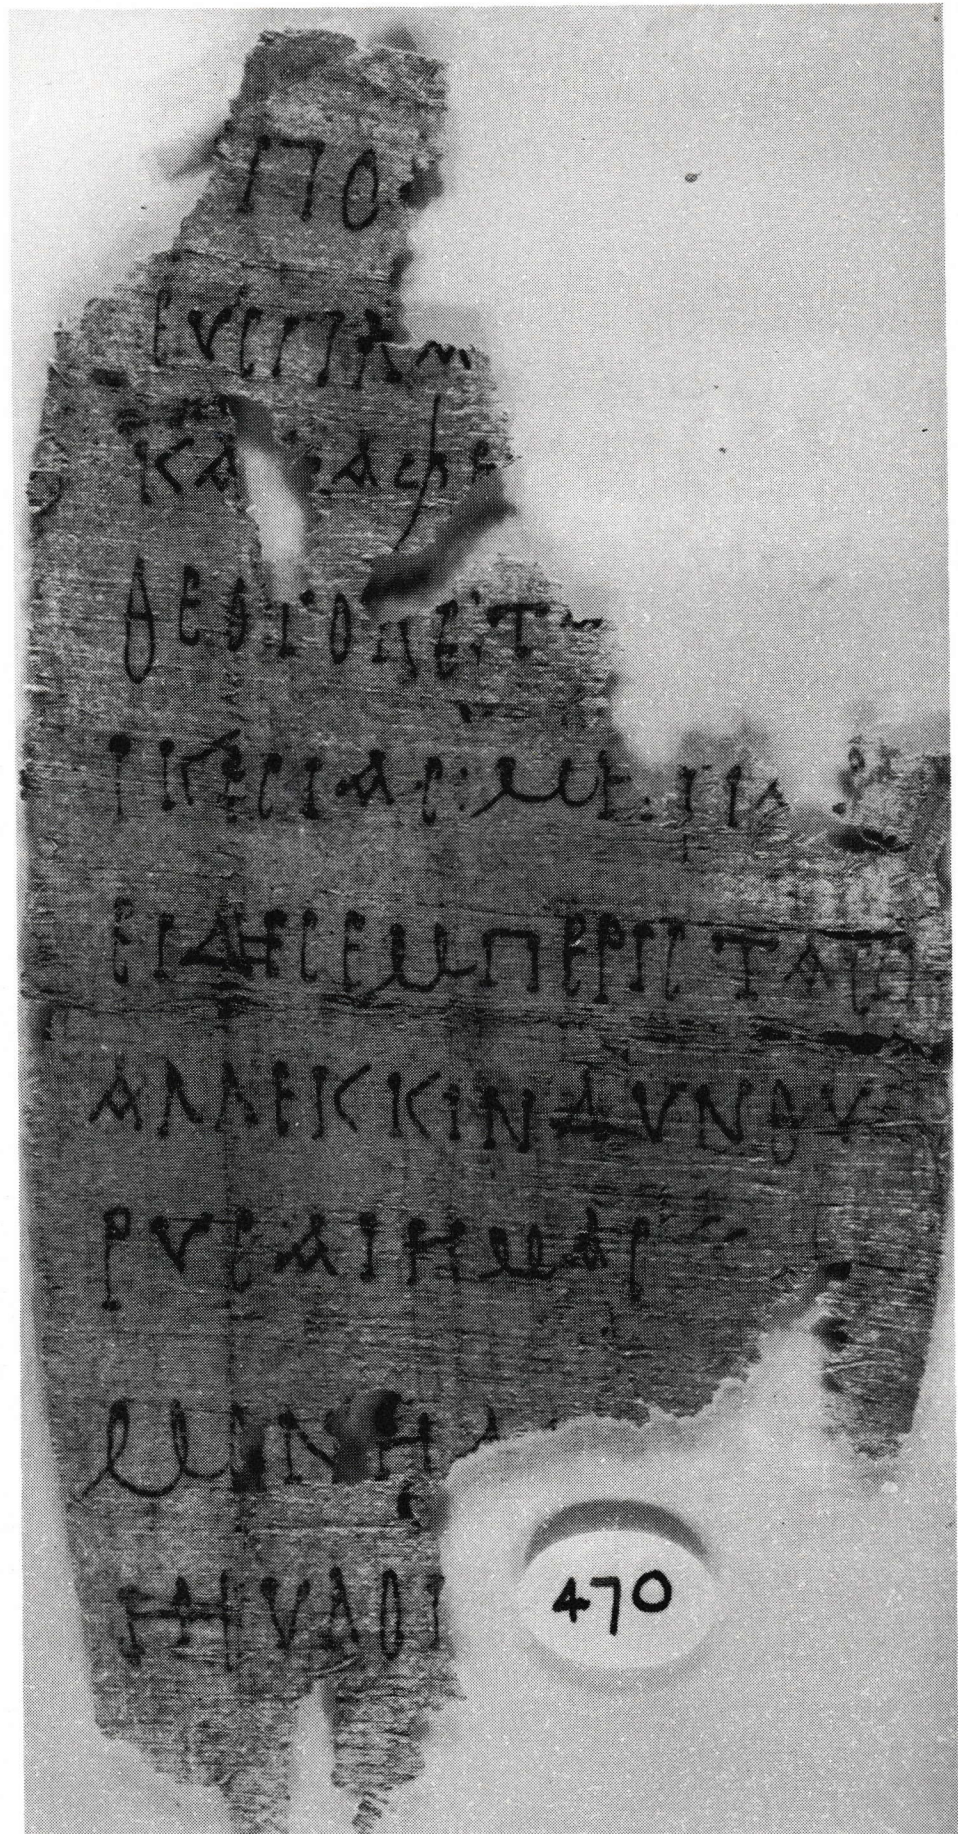 ΠΟ
ΕΥCΠΛΑ
ΚΑΤΑΦΕ
ΘΕΟΤΟΚΕΤ
ΙΚΕCΙΑCΜΗΠΑΡ
ΕΙΔΗCΕΜΠΕΡΙCΤΑCΕΙ
ΑΛΛΕΚΚΙΝΔΥΝΟΥ
ΡΥCΑΙΗΜΑC
ΜΟΝΗ
ΗΕΥΛΟΓ
470